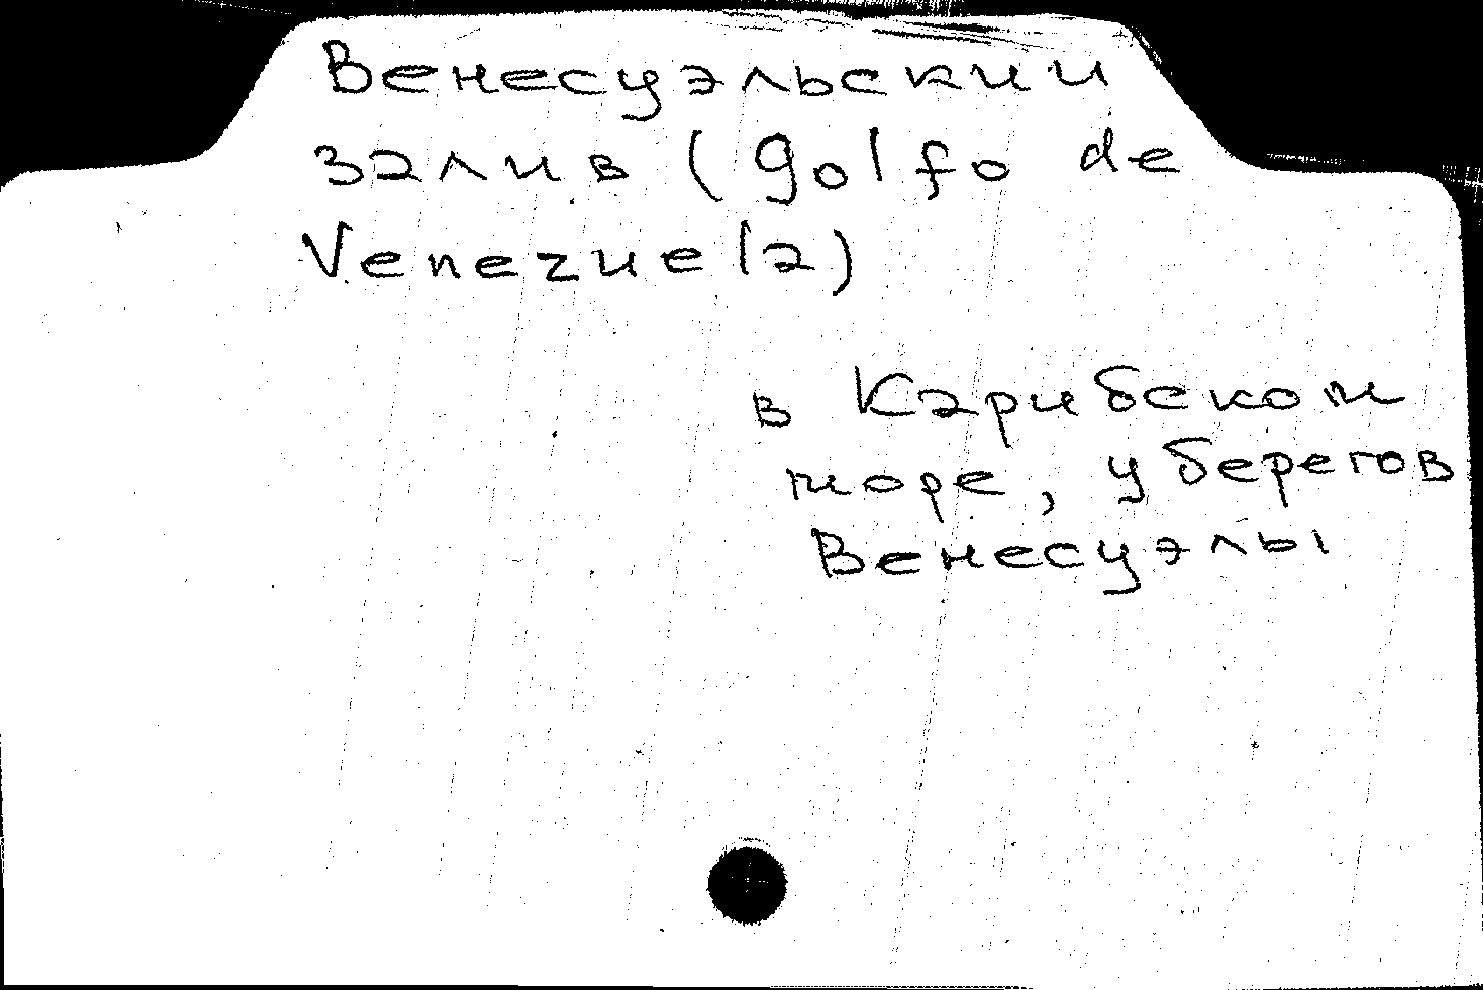 Венесуэльский
залив (golfo de
Venezuela)
в Карибском
море, у берегов
Венесуэлы